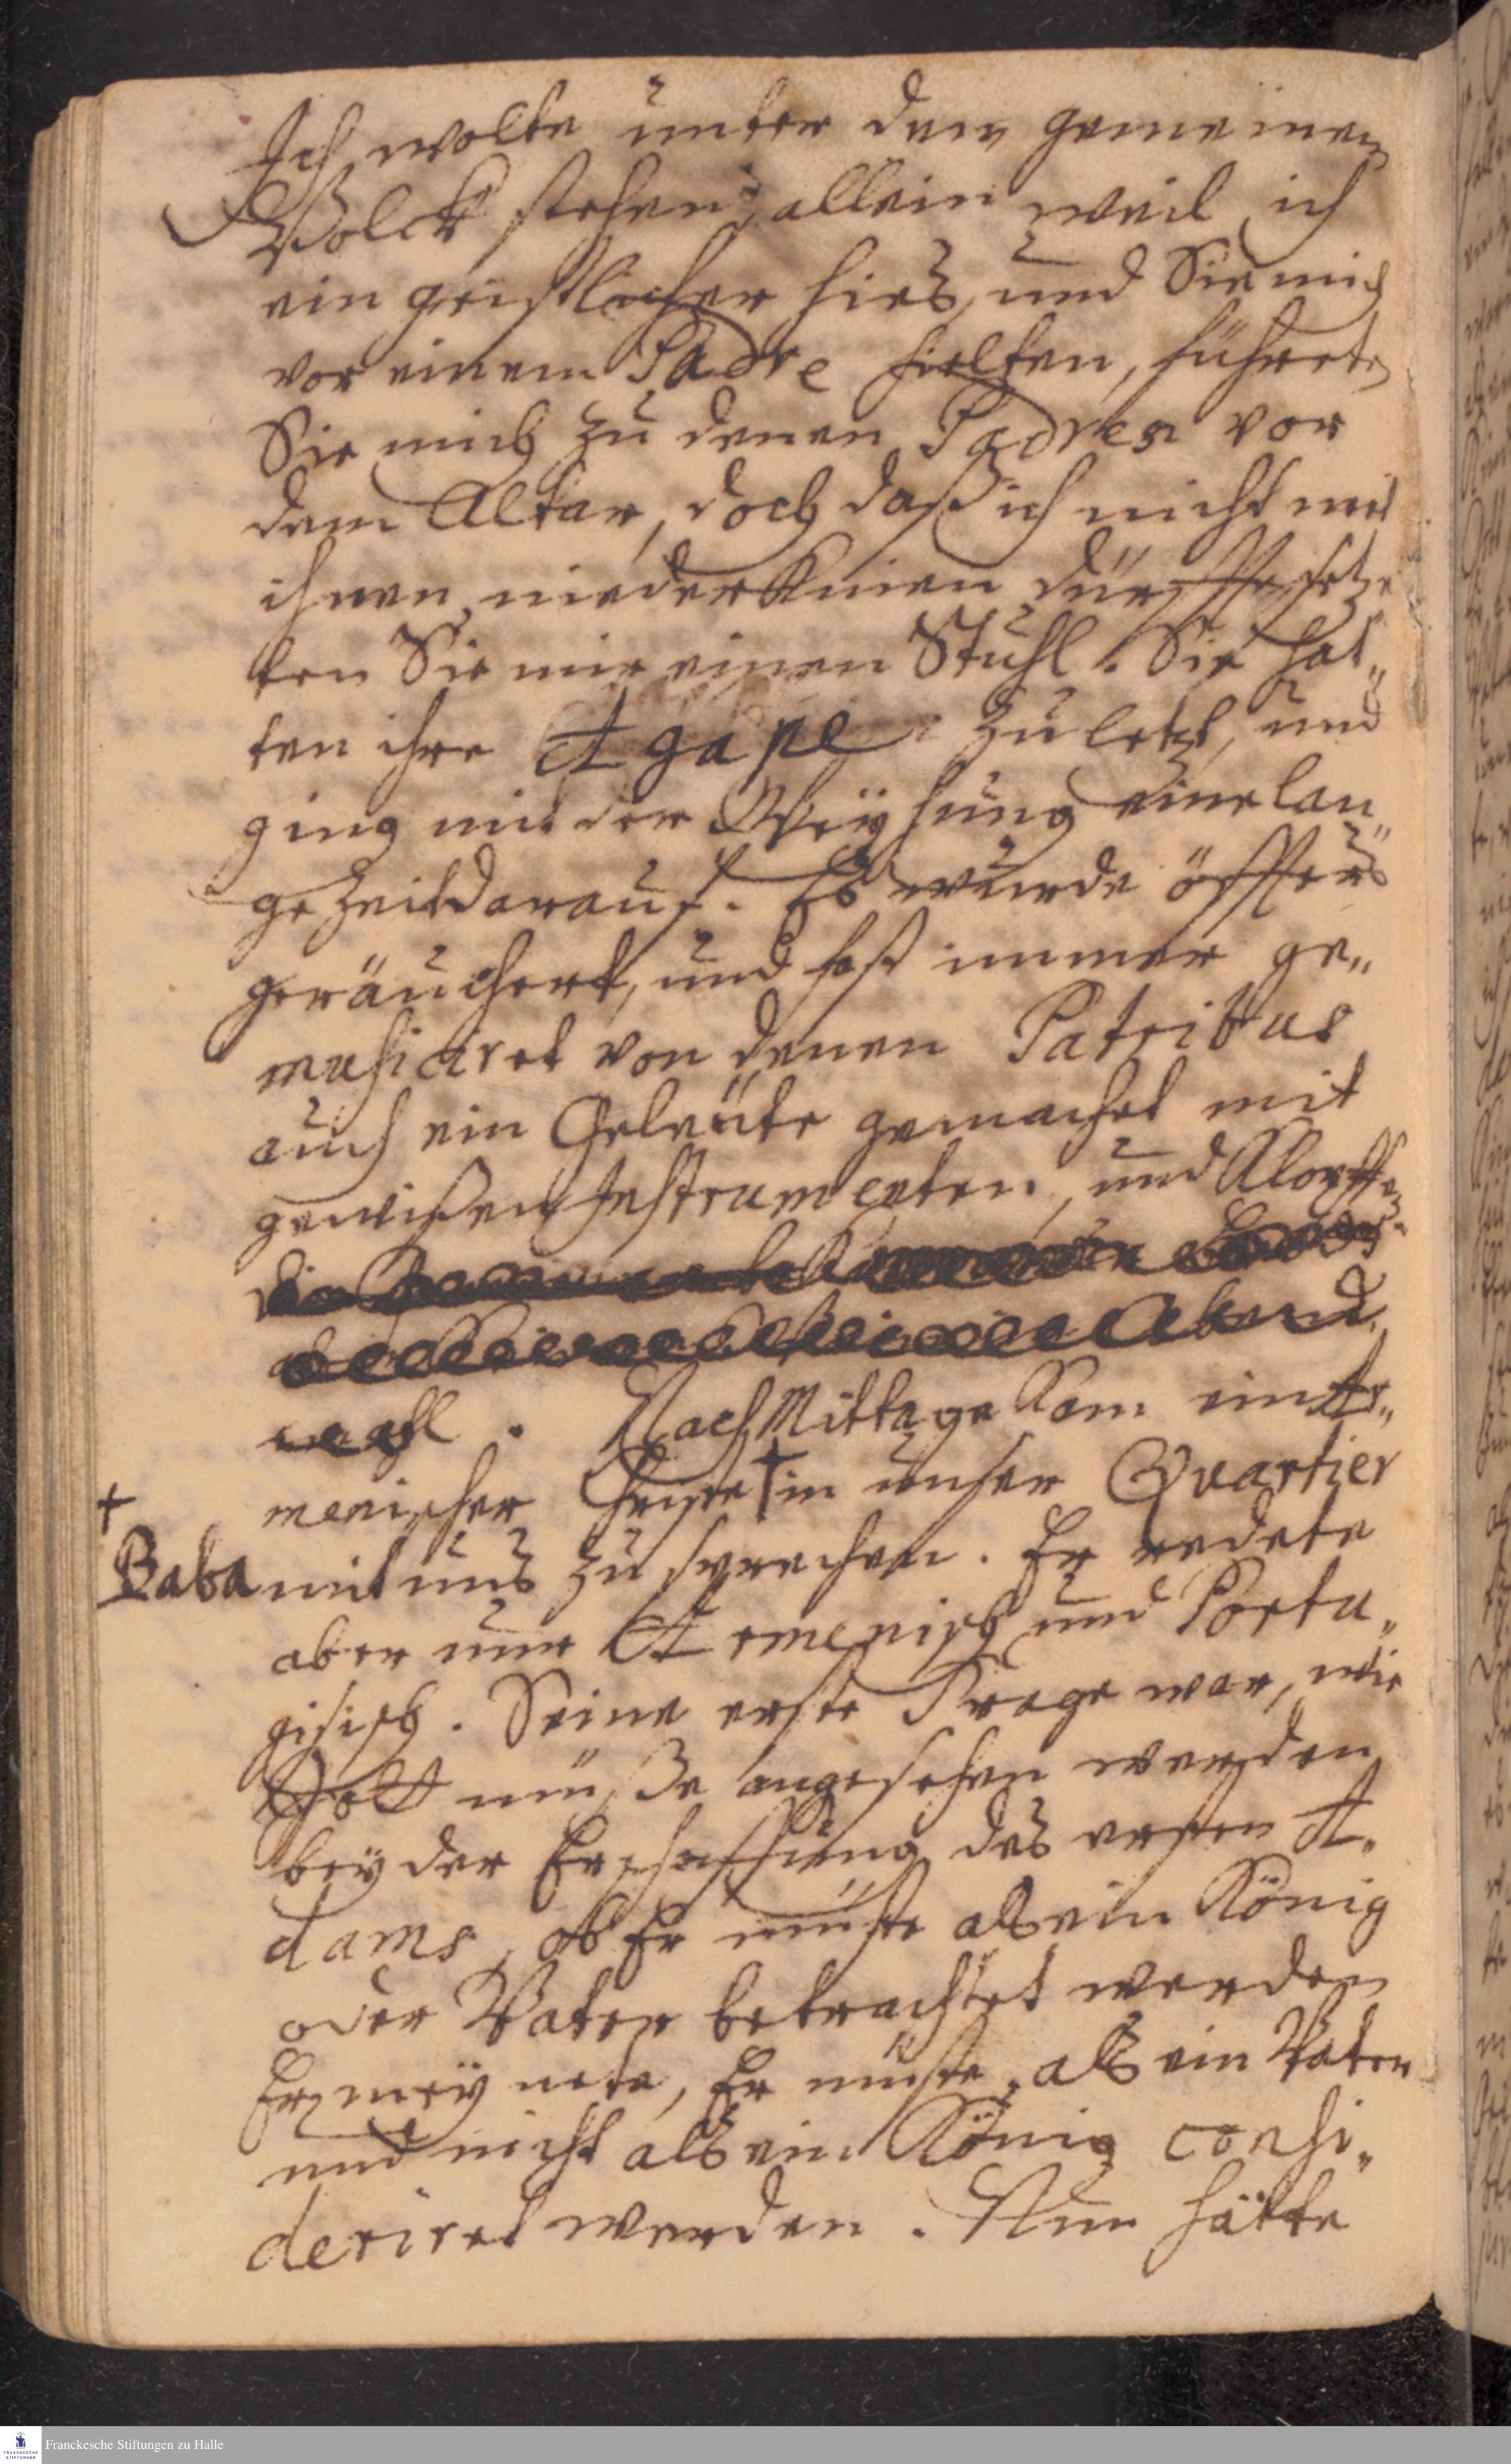 Ich wolte unter dem gemeinen
Volck stehen, allein weil ich
ein geistlicher hies, und Sie mich
vor einem Padre hielten, führete
Sie mich zu denen Padres vor
dem Altar, doch daß ich nicht mit
ihnen niederknien dürffte, setze
ten Sie mir einen Stuhl. Sie hat„
ten ihre Agape zuletzt, und
ging mit der Weyhung eine lan„
ge Zeit darauf. Es wurde öffters
geräuchert, und fast immer ge„
musiciret von denen Patribus
auch ein Geleute gemachet mit
gewißen Instrumenten, und Klopffen
die
Abend
mahl. Nach Mittage kam ein Ar„
menischer Christe + in unser Qvartier
+
Baba mit uns zu sprechen. Er redete
aber nur Armenisch und Portu„
gisisch. Seine erste Frage war, wie
Gott müße angesehen werden
bey der Erschaffung des ersten A„
dams, ob Er müste als ein König
oder Vater betrachtet werden
Er meynete, Er müste als ein Vater
und nicht als ein König consi„
deriret werden. Nun hätte
Franckesche Stiftungen zu Halle